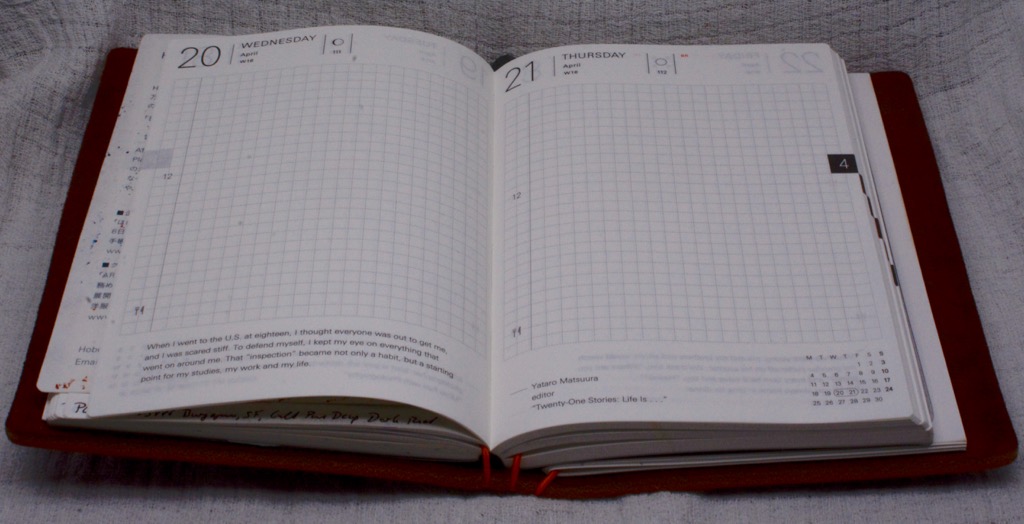 20
WEDNESDAY
April
W16
111
12
When I went to the U.S. at eighteen, I thought everyone was out to get me,
and I was scared stiff. To defend myself, I kept my eye on everything that
went on around me. That "inspection" became not only a habit, but a starting
point for my studies, my work and my life.
21
THURSDAY
April
W16
112
4
12
Yataro Matsuura
editor
"Twenty-One Stories: Life Is . . ."
M T W T F S S
1 2 3
4 5 6 7 8 9 10
11 12 13 14 15 16 17
18 19 20 21 22 23 24
25 26 27 28 29 30